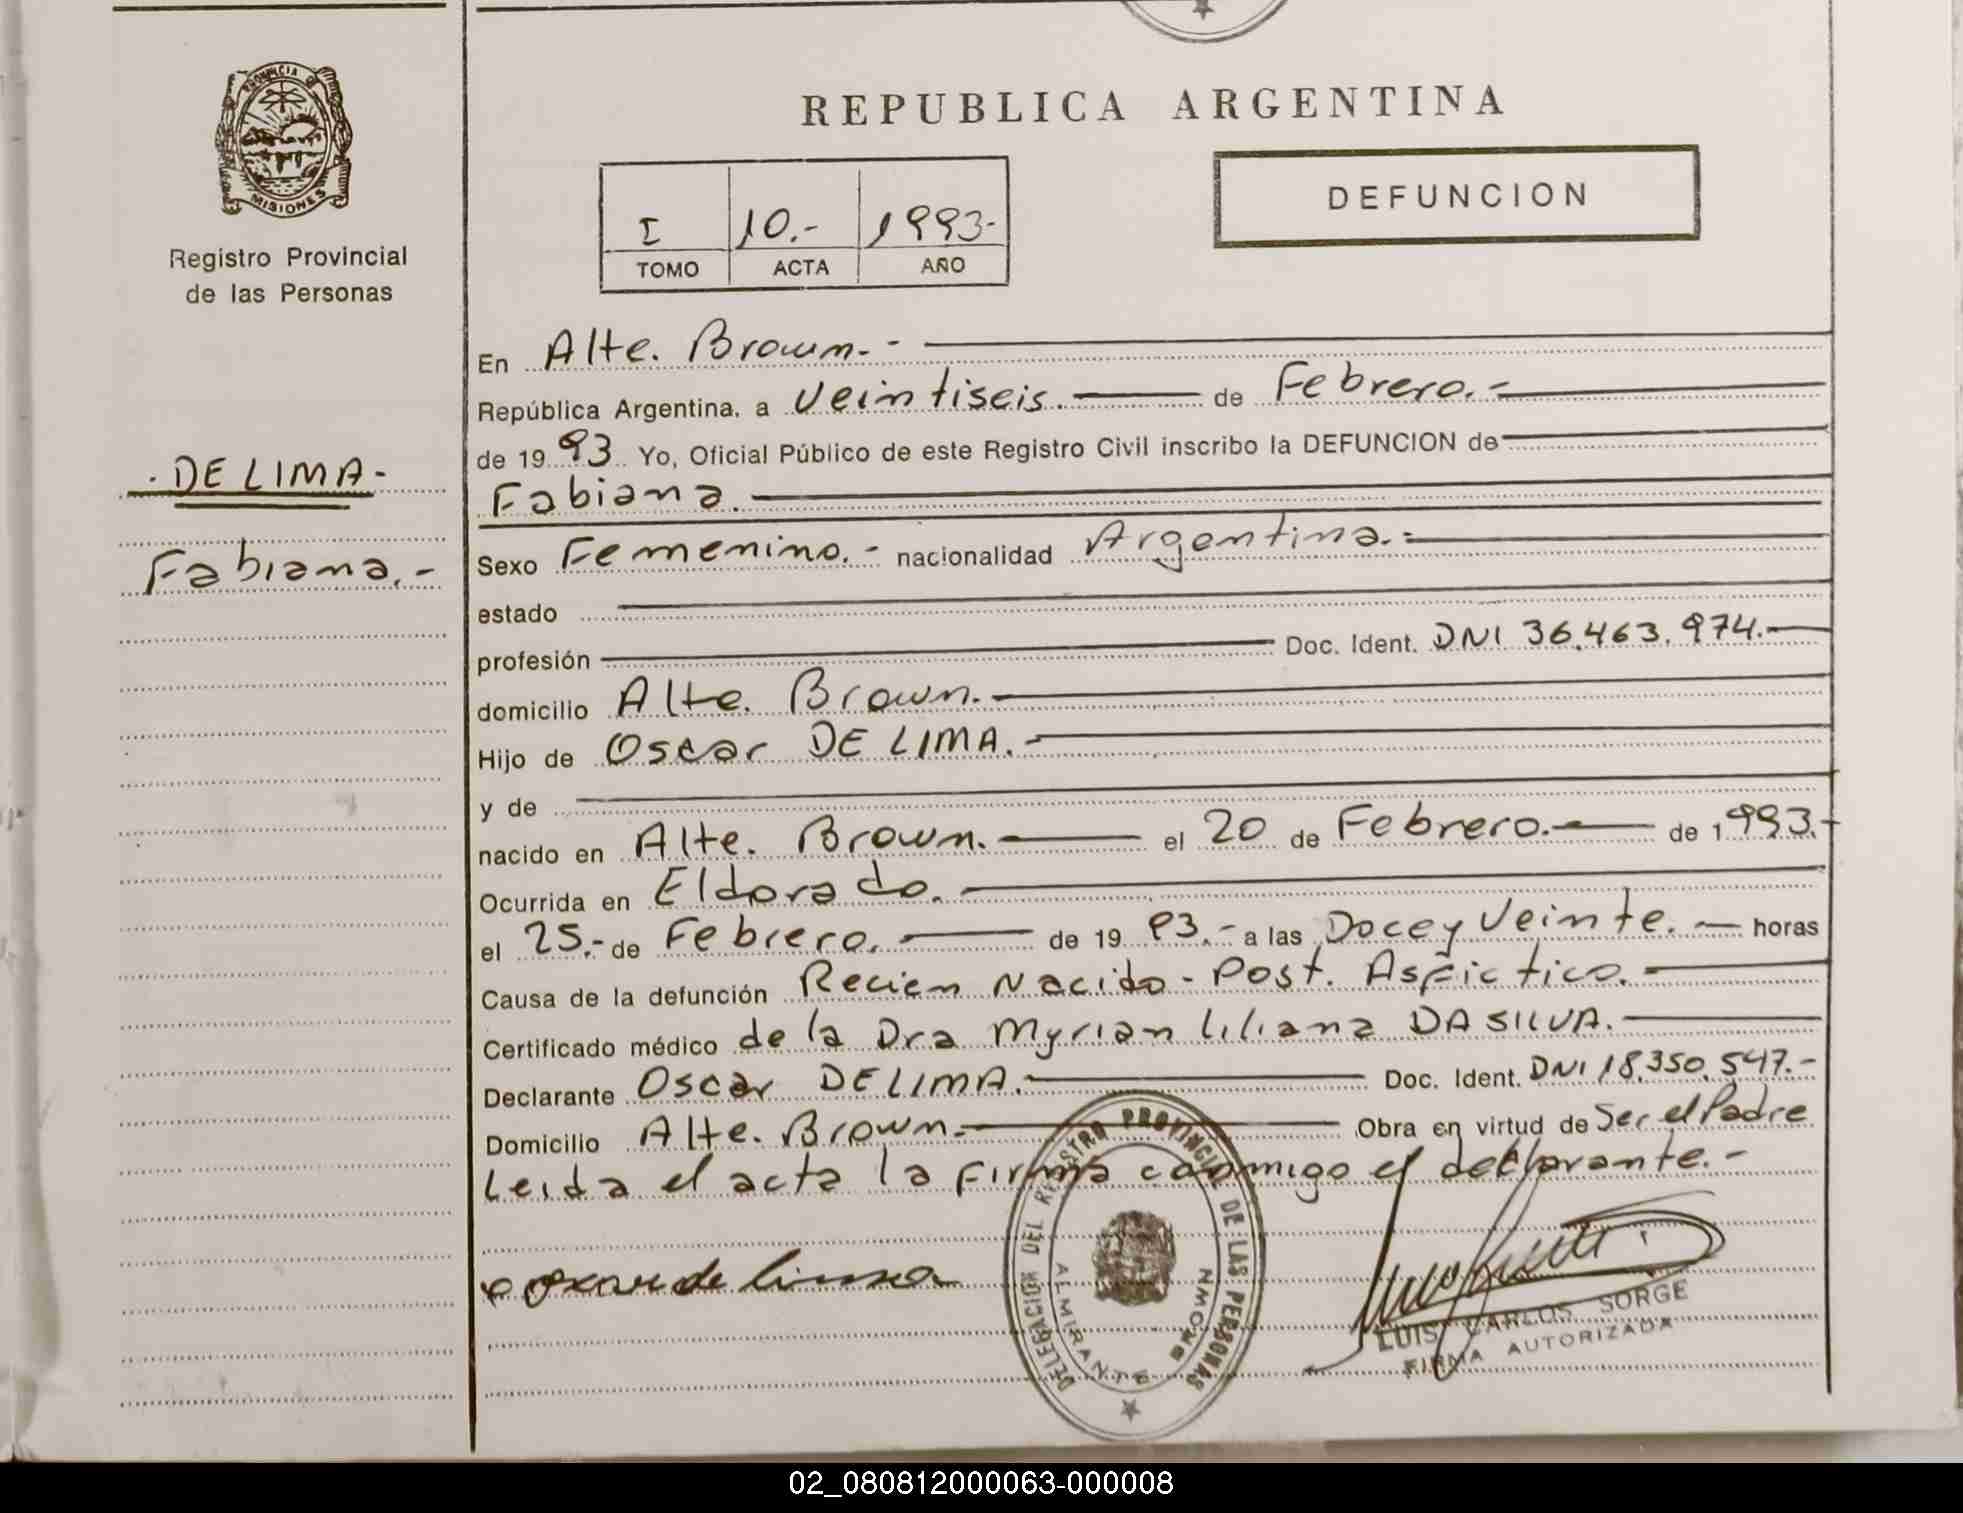 PROVINCIA DE
MISIONES
Registro Provincial
de las Personas
REPUBLICA ARGENTINA
I 10.- 1993-
TOMO ACTA AÑO
DEFUNCION
En Alte. Brown.-
República Argentina, a Veintiseis. de Febrero.-
de 1993 Yo, Oficial Público de este Registro Civil inscribo la DEFUNCION de
. DE LIMA -
Fabiana.
Fabiana.-
Sexo Femenino.- nacionalidad Argentina.-
estado
profesión Doc. Ident. DNI 36.463.974.-
domicilio Alte. Brown.-
Hijo de Oscar DE LIMA.-
y de
nacido en Alte. Brown.- el 20 de Febrero.- de 1993.-
Ocurrida en Eldorado.-
el 25.- de Febrero.- de 1993.- a las Doce y Veinte.- horas
Causa de la defunción Recien Nacido - Post. Asfictico.-
Certificado médico de la Dra Myrian Liliana DA SILVA.-
Declarante Oscar DE LIMA.- Doc. Ident. DNI 18.350.547.-
Domicilio Alte. Brown.- Obra en virtud de Ser el Padre
Leida el acta la firma conmigo el declarante.-
oscar de lima
DELEGACION DEL REGISTRO PROVINCIAL DE LAS PERSONAS
ALMIRANTE BROWN
LUIS CARLOS SORGE
FIRMA AUTORIZADA
02_080812000063-000008